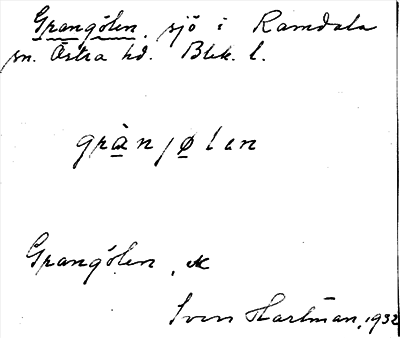 Grangölen, sjö i Ramdala
sn. Östra hd. Blek. l.
gràn jø l en
Grangölen,
Sven Hartman, 1932